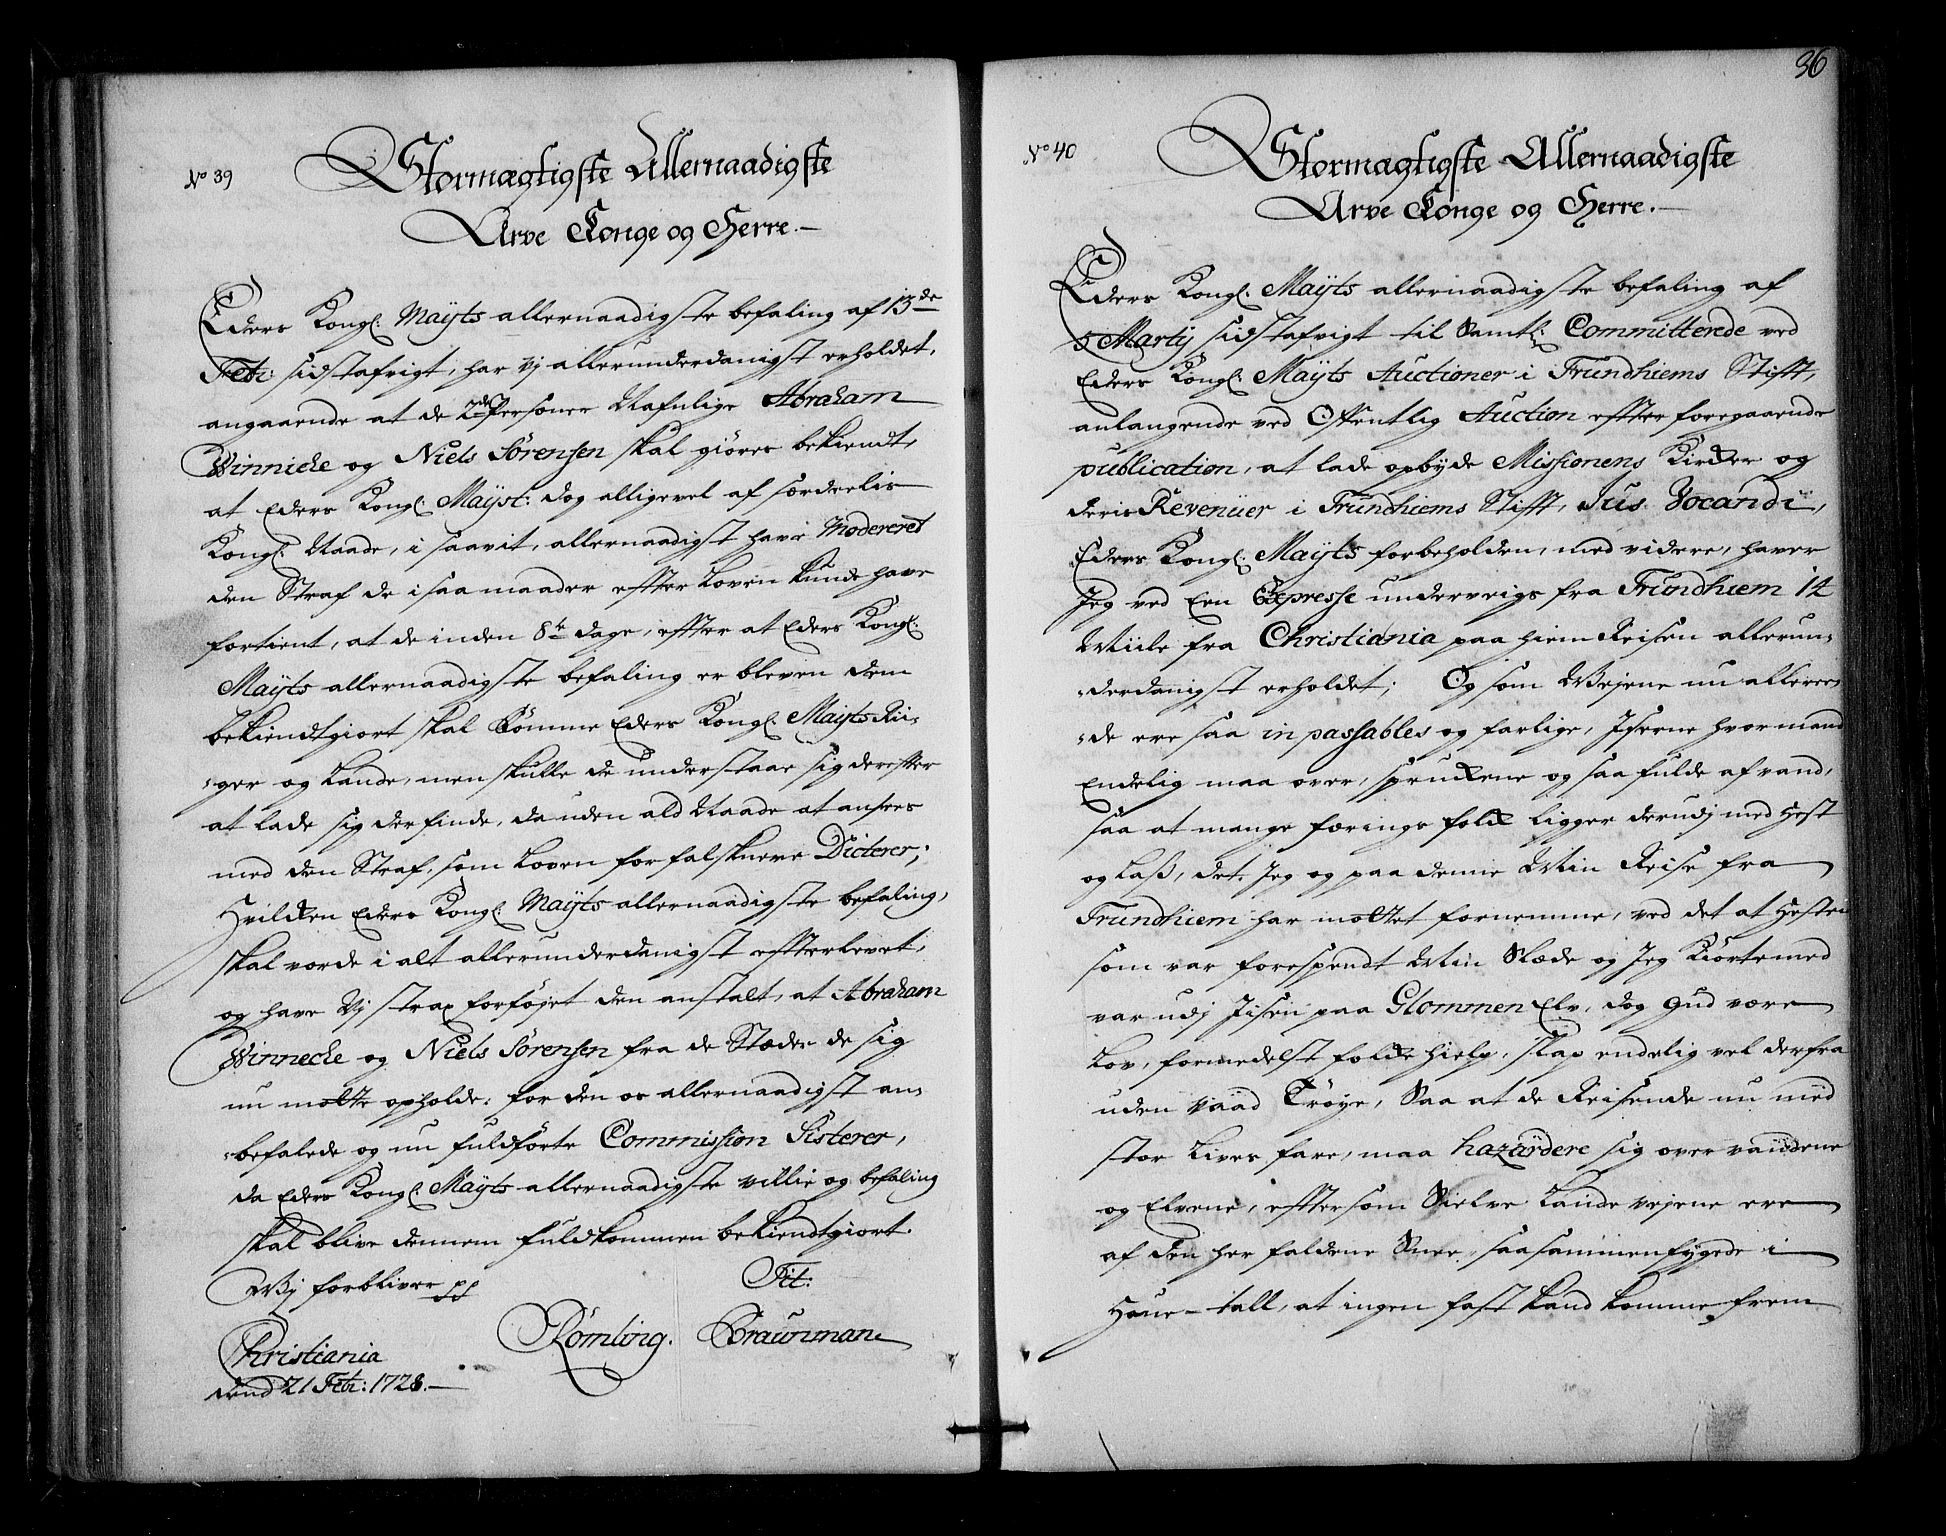 No 39
Stormægtigste Allernaadigste
Arve Konge og Herre.
Eders Kongl: Mayts allernaadigste befaling af 13de
Febr: sidstafvigt, har vj allerunderdanigst erholdet,
angaaende at de 2de Persohner Nafnlige Abraham
Winniche og Niels Sørensen skal giøres bekiendt,
at Eders Kongl: Mayst: dog alligevel af særdeelis
Kongl: Naade, i saavit, allernaadigst have Modereret
den Straf de i saa maader effter Loven kunde have
fortient, at de inden 8te dage, effter at Eders Kongl:
Mayts allernaadigste befaling er bleven dem
bekiendtgiort skal Römme Eders Kongl: Mayts Rii-
-ger og Lande, men skulle de understaae sig dereffter
at lade sig der finde, da uden ald Naade at ansees
med den Straf, som Loven for falsknere Dicterer;
Hvilken Eders Kongl: Mayts allernaadigste befaling,
skal vorde i alt allerunderdanigst effterlevet,
og have Vj strax forföyet den anstalt, at Abraham
Winneche og Niels Sörensen fra de Stæder de sig
nu motte opholde, for den os allernaadigst an-
-befalede og nu fuldförte Commission Sisterer,
da Eders Kongl: Mayts allernaadigste villie og befaling
skal blive dennem fuldkommen bekiendtgiort.
Vj forblive pp
Tit:
Römling. Braunman
Christiania
dend 21 Febr: 1728.

36
No 40
Stormægtigste Allernaadigste
Arve Konge og Herre.
Eders Kongl: Mayts allernaadigste befaling af
5 Martij sidstafvigt til Samtl: Committerede ved
Eders Kongl: Mayts Auctioner i Trundhiems Stifft,
anlangende ved Offentlig Auction effter foregaaende
publication, at lade opbyde Missionens Kirker og
deris Revenüer i Trundhiems Stifft, Jus Vocandi,
Eders Kongl: Mayts forbeholden, med videre, haver
Jeg ved Een Expresse underveigs fra Trundhiem 14
Miile fra Christiania paa hiem Reisen allerun-
-derdanigst erholdet; Og som Vejene nu alleree-
-de ere saa inpassables og farlige, Jserne hvor mand
Endelig maa over, sprukkene og saa fulde af vand,
saa at mange færings folk ligger derudj med Hest
og Lass, det Jeg og paa denne Min Reise fra
Trundhiem har mottet fornemme, ved det at Hesten
som var forespendt Min Slæde og Jeg kiörte med
var udj Jisen paa Glommen Elv, dog Gud være
Lov, formedelst folks hielp, slap endelig vel derfra
uden vaad Tröye, Saa at de Reisende nu med
stor Livs fare, maa hazardere sig over vandene
og Elvene, effter som Sielve Lande vejene ere
af den her faldene Snee, saa sammenfygede i
Haue-tall, at ingen fast kand komme frem